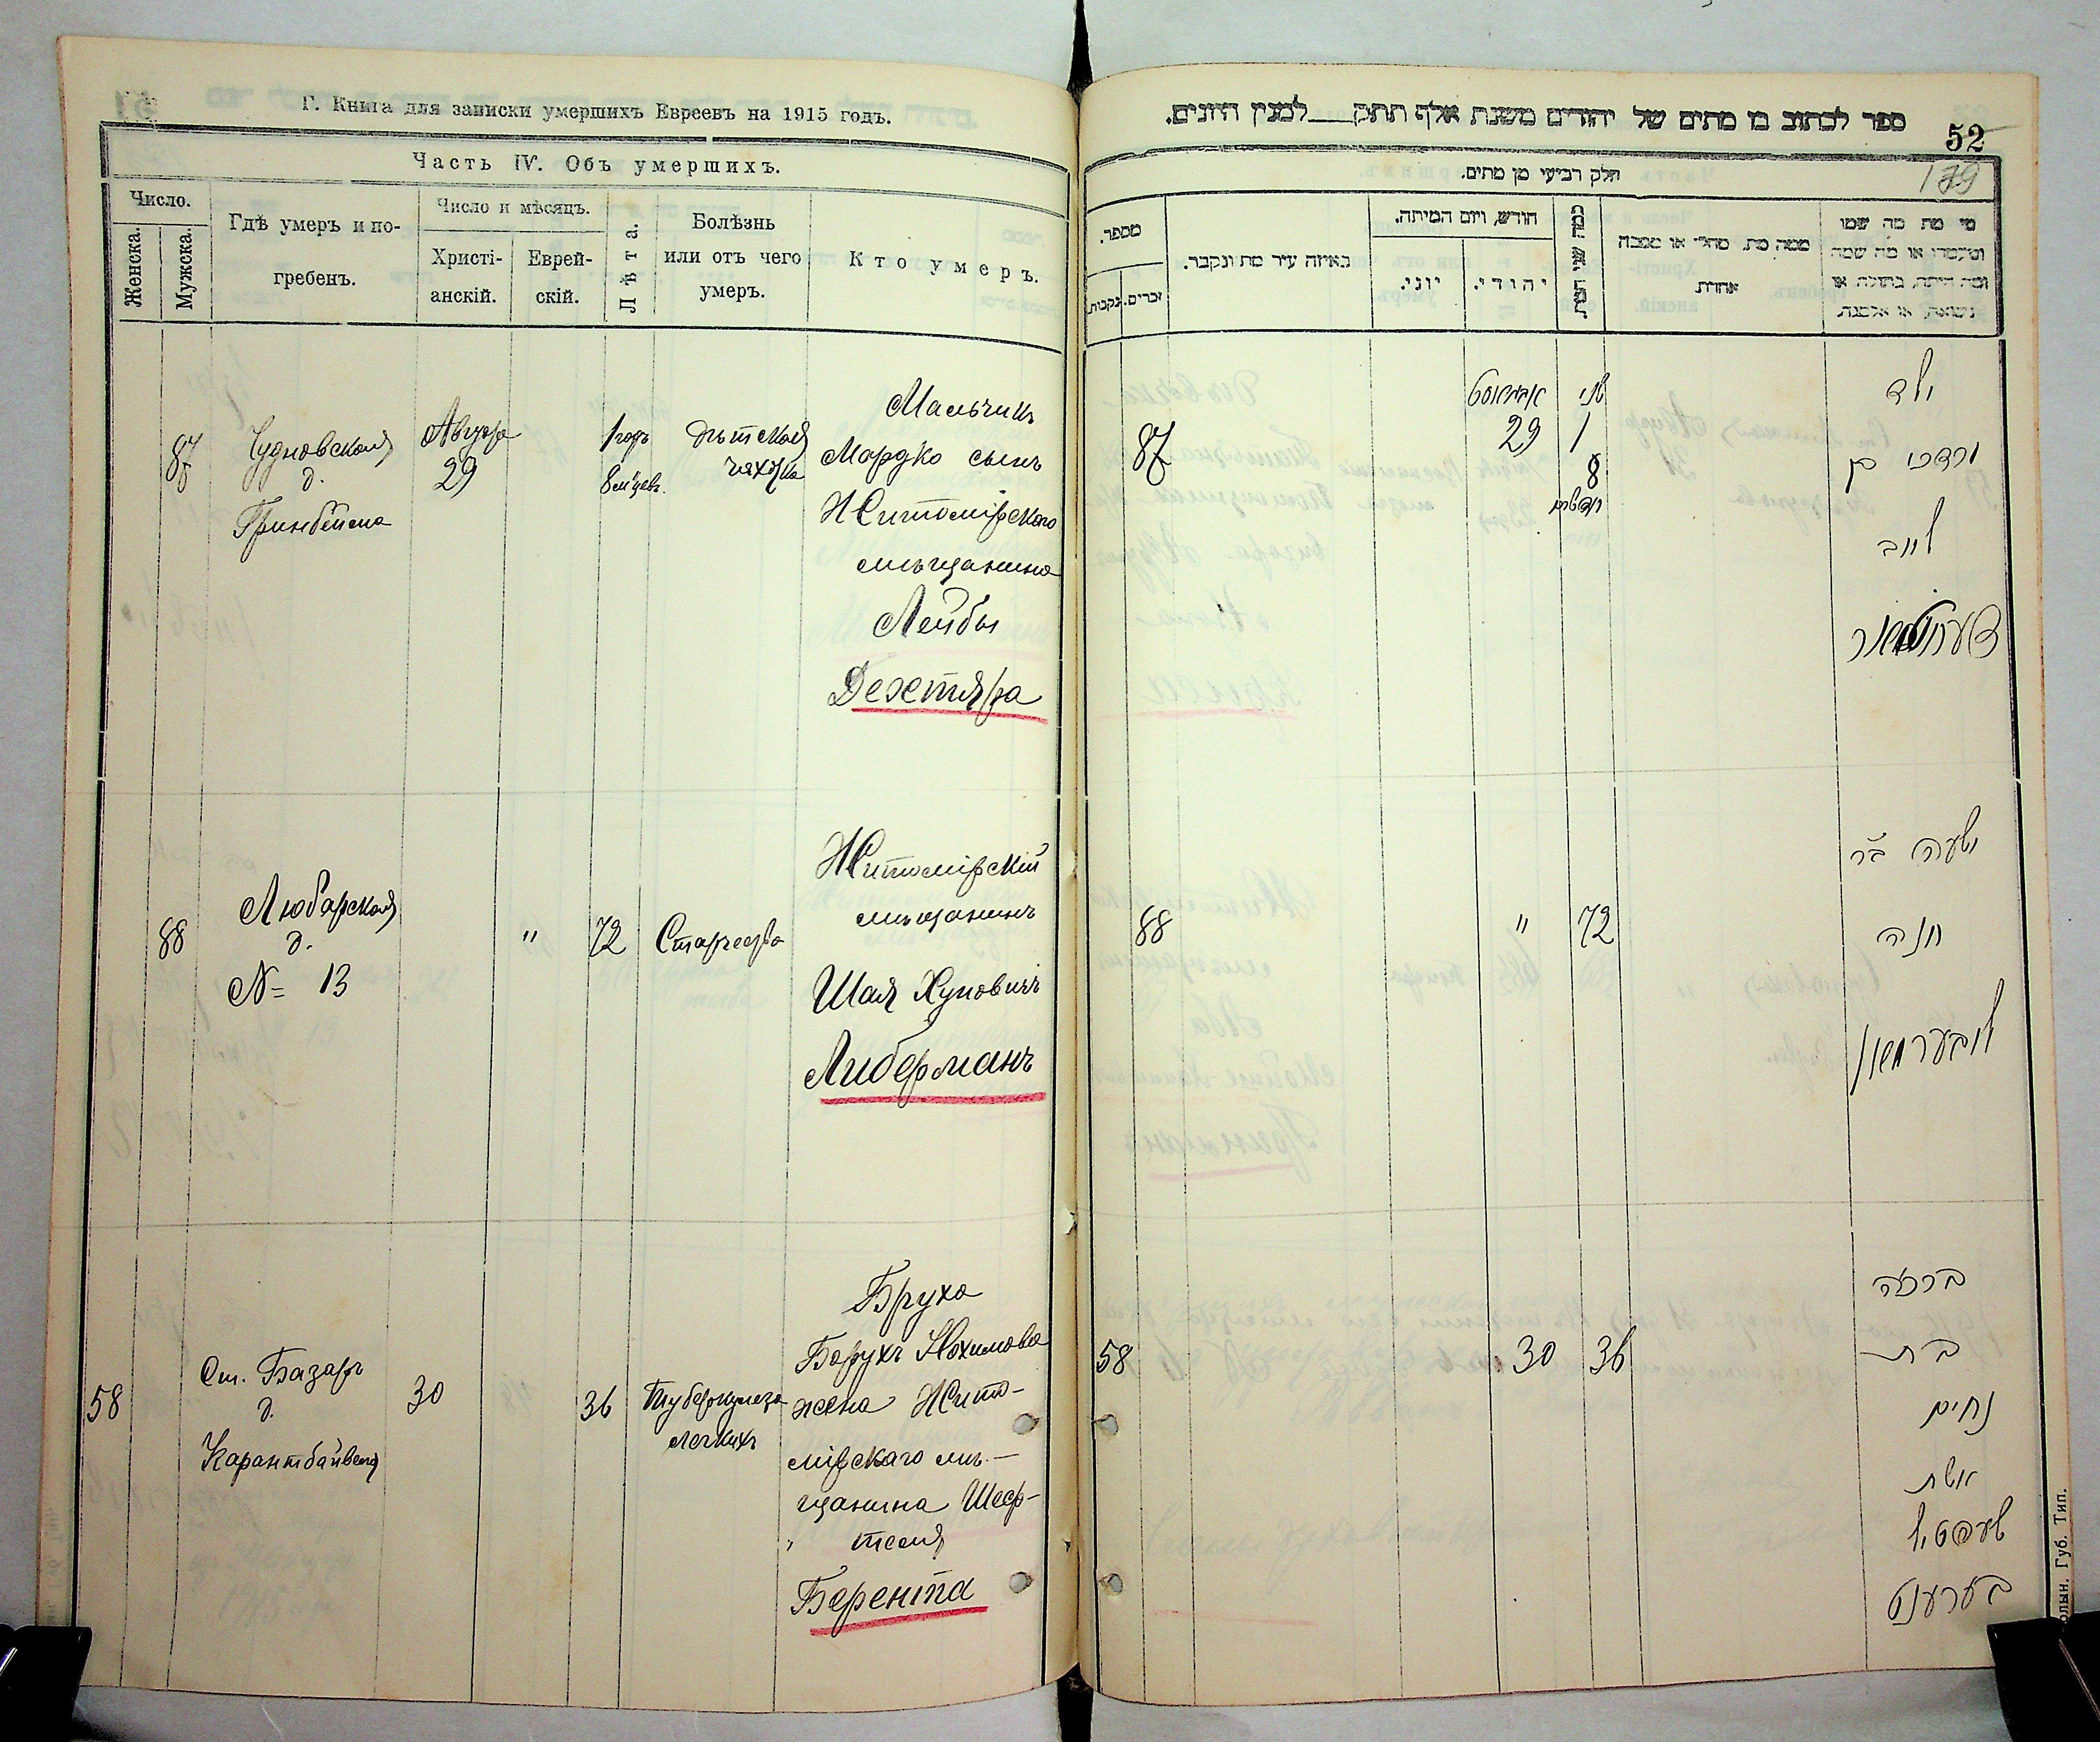 Г. Книга для записки умершихъ Евреевъ на 1915 годъ.
Часть IV. Объ умершихъ.
Число.
Женска.
Мужска.
Гдѣ умеръ и по-
гребенъ.
Число и мѣсяцъ.
Христі-
анскій.
Еврей-
скій.
Лѣта.
Болѣзнь
или отъ чего
умеръ.
Кто умеръ.
87
Чудновская
д.
Гринбейма
Августа
29
1 годъ
8 м‑цевъ.
дѣтская
чахотка
Мальчикъ
Мордко сынъ
Житомірского
мѣщанина
Лейбы
Дехтяра
88
Любарская
д.
№ 13
"
72
Старчества
Житомірскій
мѣщанинъ
Шая Хуновичъ
Либерманъ
58
Ст. Базаръ
д.
30
36
Туберкулеза
легкихъ
Бруха
Борухъ Нохимова
жена Жито-
мірскаго мѣ-
щанина Шеф-
теля
Берента
ספר לכתוב בו מתים של יהודים משנת אלף תתק לממנין היונים.
52
179
חלק רביעי מן מתים.
מספר.
נקבות.
זכרים.
באיזה עיר מת ונקבר.
חודש, ויום המיתה.
יוני.
יהודי.
כמה שני המת.
ממה מת. מחלי או מסבה
אחרת
מי מת מה שמו
ומעמדו או מה שמה
ומה היתה, בתולה או
נשואה, או אלמנה.
87
אויגוסט
29
שני
1
8
חדשים
ילד
מרדכי בן
לייב
88
"
72
ישעיה ב"ר
חונה
ליבערמאן
58
30
36
ברכה
בת
נחום
אשת
שעפטיל
בערענט
олын. Губ. Тип.